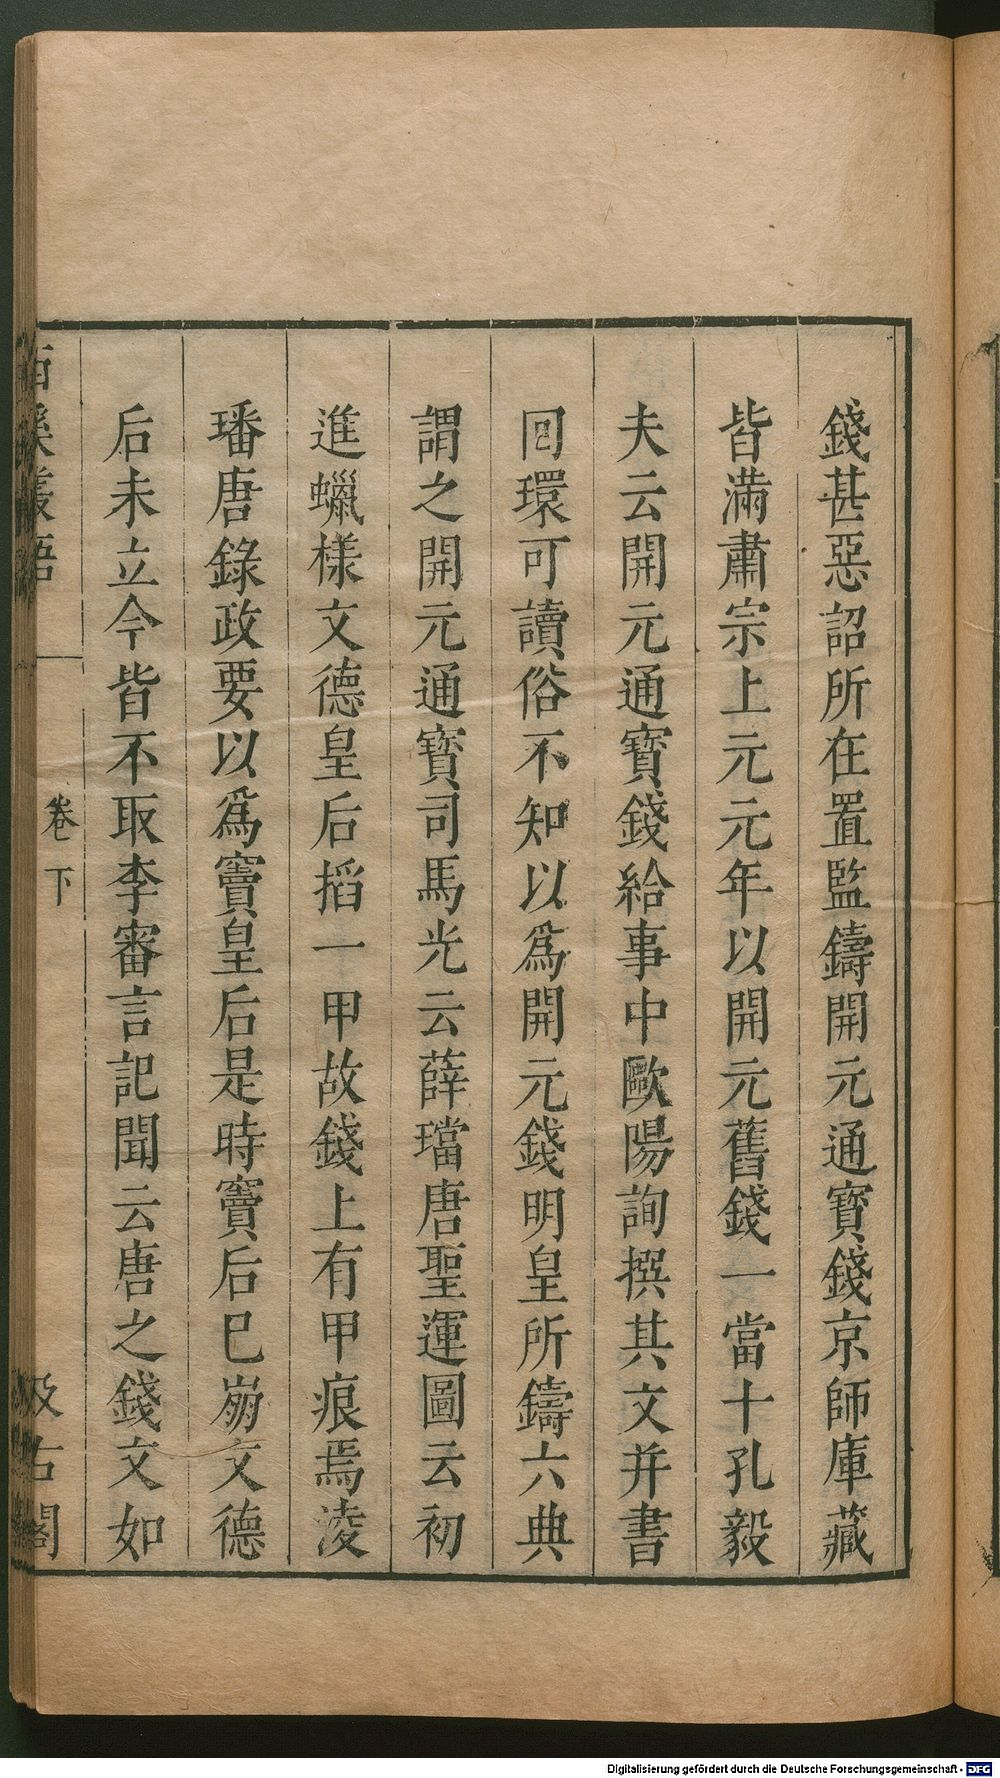 錢甚惡詔所在置監鑄開元通寳錢京師庫藏
皆滿肅宗上元元年以開元舊錢一當十孔毅
夫云開元通寳錢給事中歐陽詢撰其文并書
回環可讀俗不知以爲開元錢明皇所鑄六典
謂之開元通寳司馬光云薛璫唐聖運圖云初
進蠟樣文德皇后搯一甲故錢上有甲痕焉凌
璠唐錄政要以爲竇皇后是時竇后已崩文德
后未立今皆不取李審言記聞云唐之錢文如
西溪叢語
卷下
汲古閣
Digitalisierung gefördert durch die Deutsche Forschungsgemeinschaft - DFG